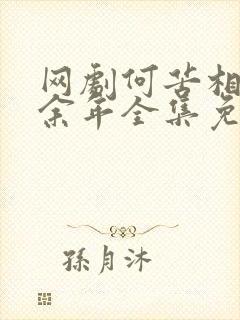 网剧何苦相
余年全集免
孫月沐